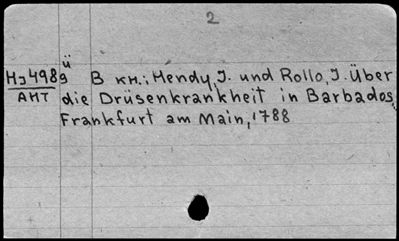 2
ü
Нэ4989 В кн.: Hendy, J. und Rollo, J. Über
АНТ die Drüsenkrankheit in Barbados,
Frankfurt am Main, 1788